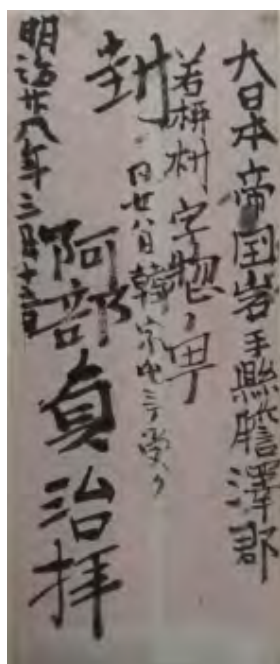 大日本帝国岩手縣膽澤郡
若栁村字惣ノ町
封
日廿八日韓家屯ニテ受ク
阿部貞治拝
明治廿八年三月十二日